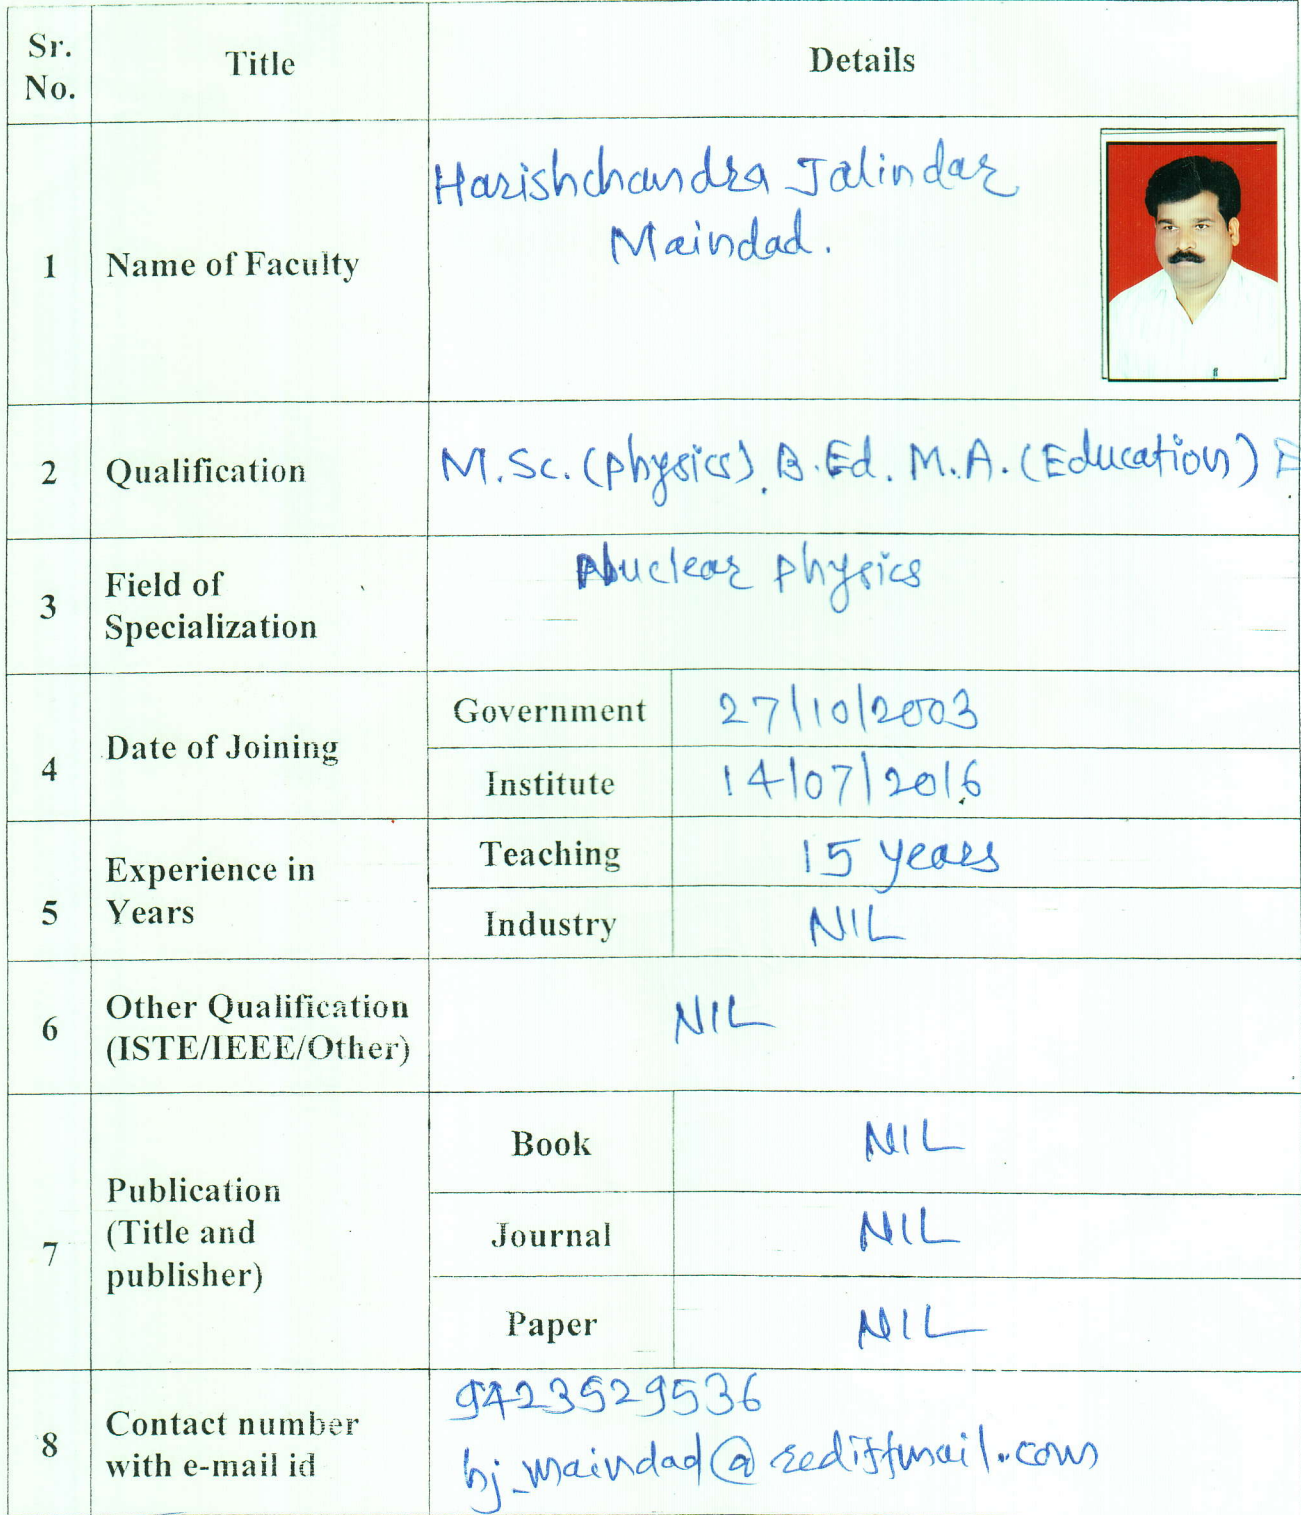 Sr. No. Title Details
1 Name of Faculty Harishchandra Jalindar
Maindad.
2 Qualification M.Sc. (physics). B.Ed. M.A. (Education)
3 Field of Specialization Nuclear physics
4 Date of Joining Government 27/10/2003
Institute 14/07/2016
5 Experience in Years Teaching 15 years
Industry NIL
6 Other Qualification (ISTE/IEEE/Other) NIL
7 Publication (Title and publisher) Book NIL
Journal NIL
Paper NIL
8 Contact number with e-mail id 9423529536
hj_maindad@rediffmail.com